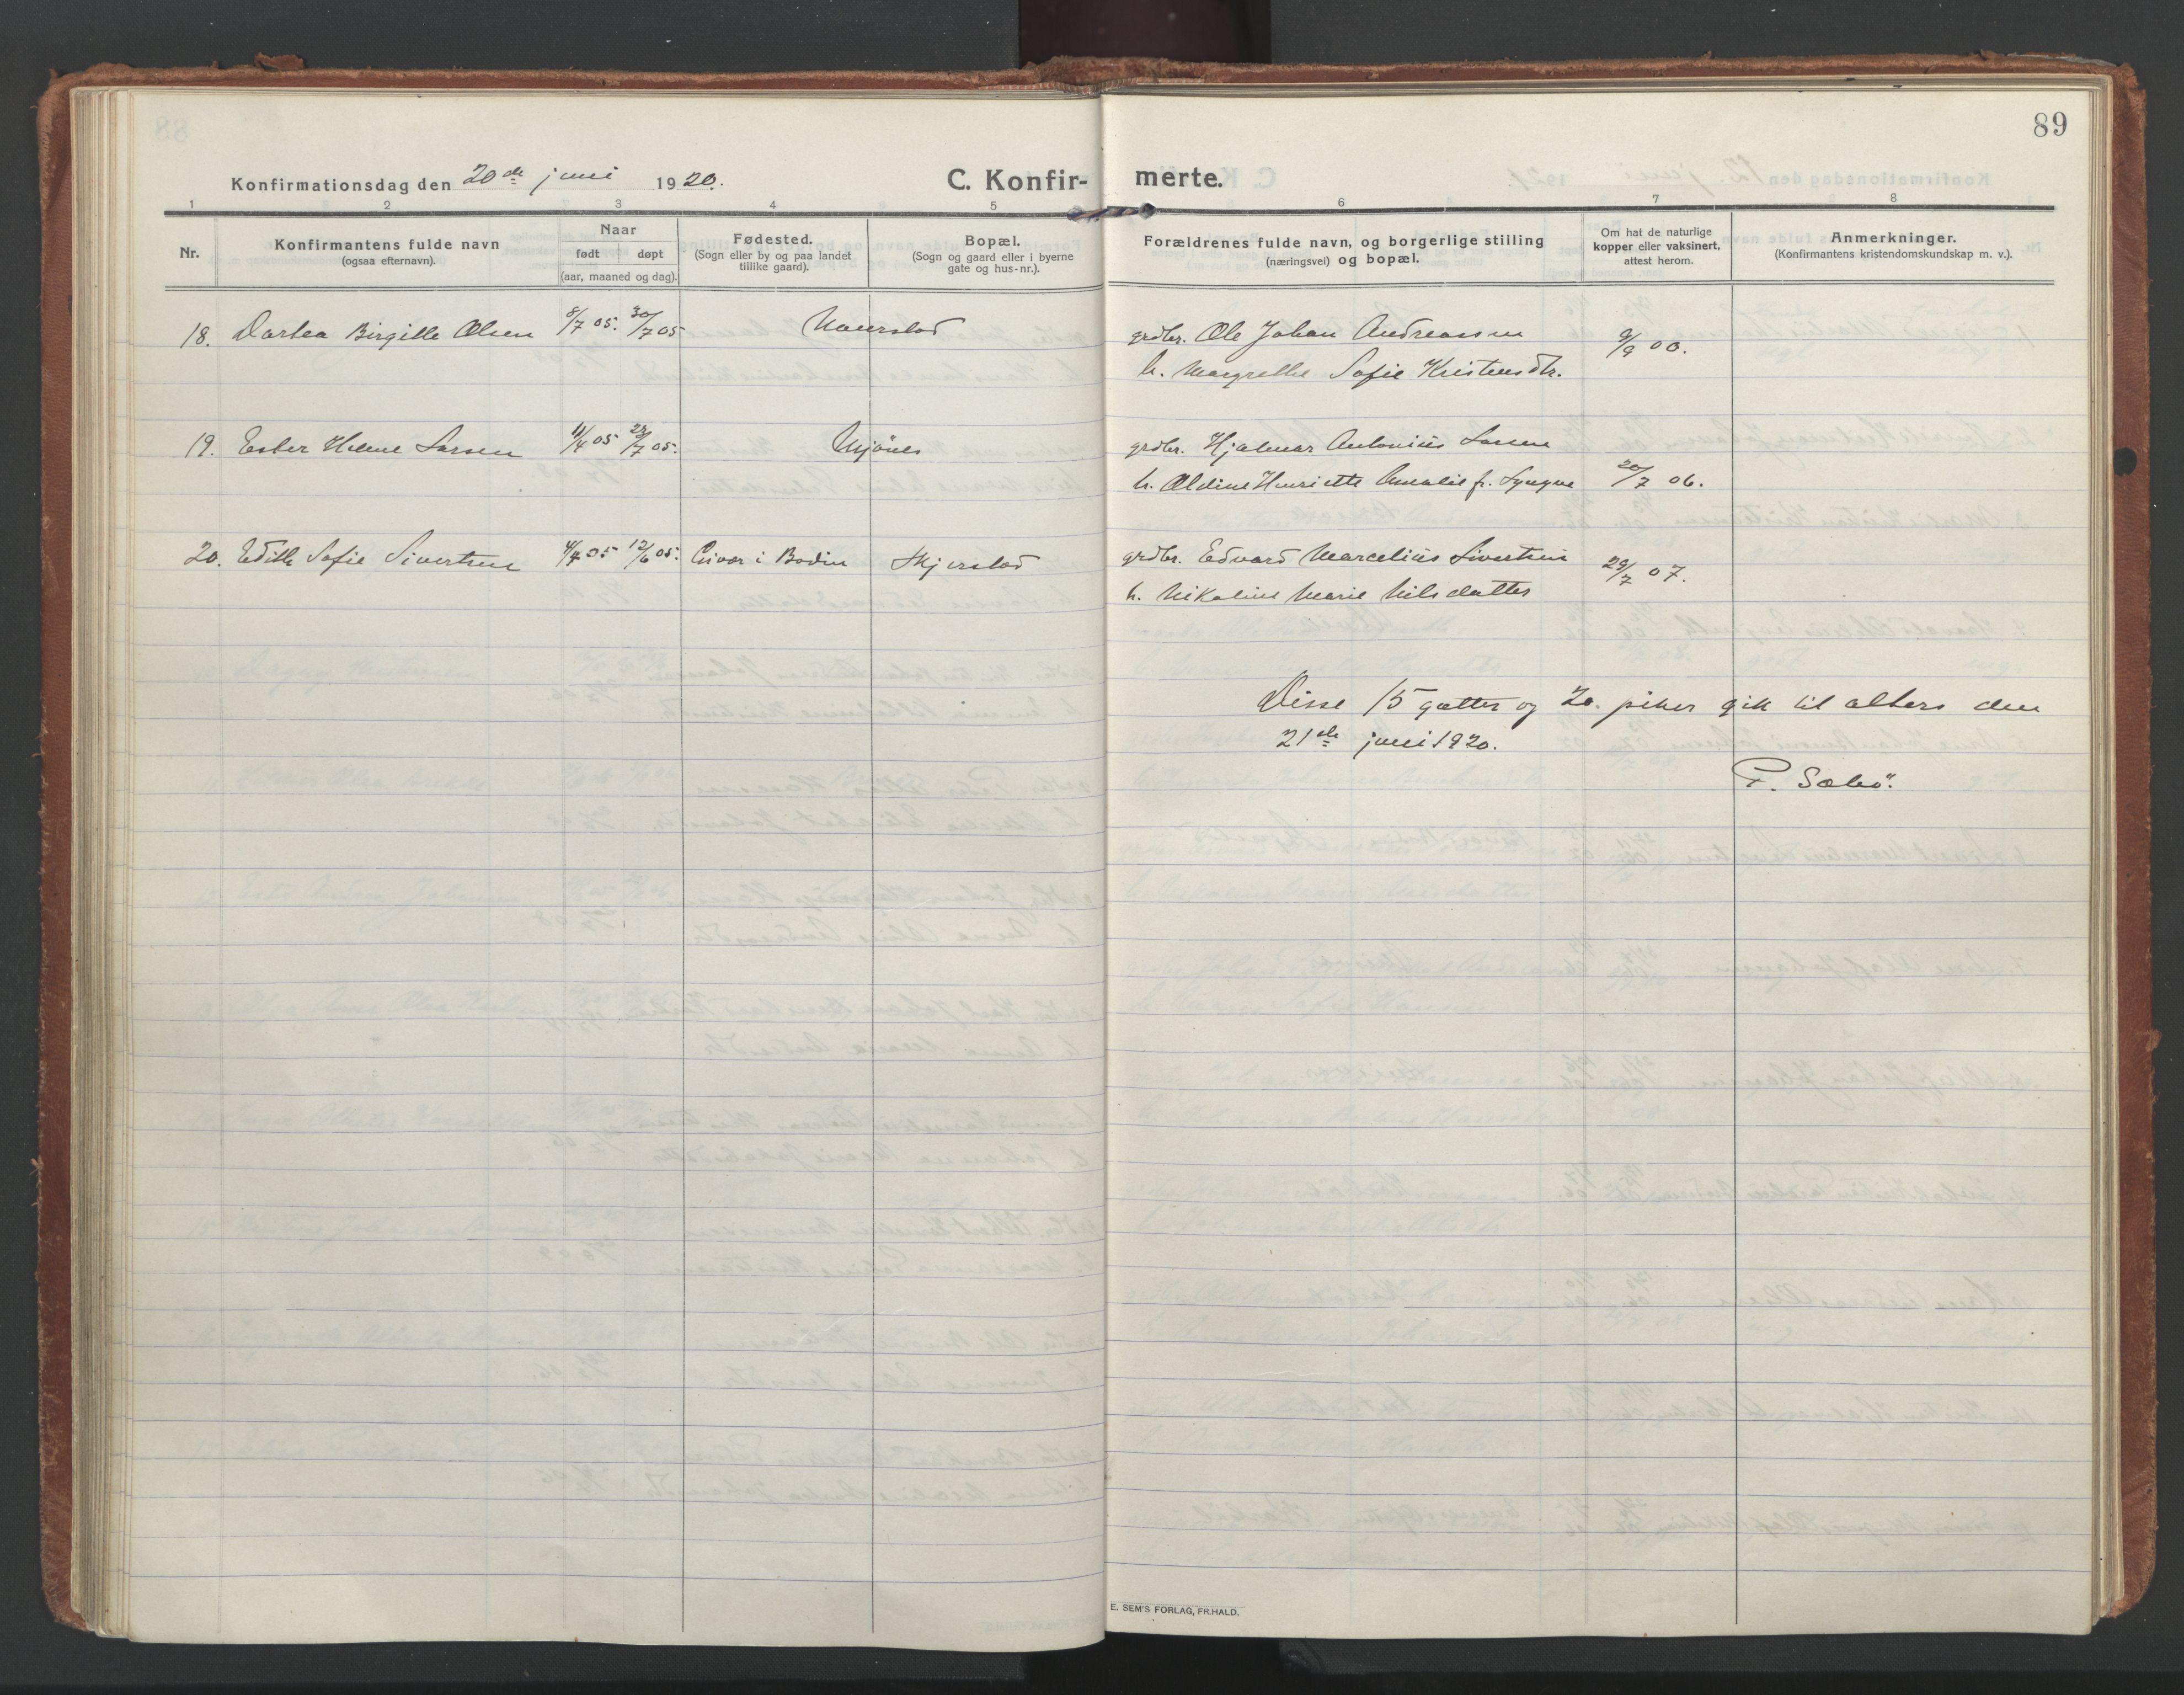 89
Konfirmationsdag den 20de juni 1920.
C. Konfir-
merte.
1 2 3 4 5 6 7 8
Nr.
Konfirmantens fulde navn
(ogsaa efternavn).
Naar
født døpt
(aar, maaned og dag).
Fødested.
(Sogn eller by og paa landet
tillike gaard).
Bopæl.
(Sogn og gaard eller i byerne
gate og hus-nr.).
Forældrenes fulde navn, og borgerlige stilling
(næringsvei) og bopæl.
Om hat de naturlige
kopper eller vaksinert,
attest herom.
Anmerkninger.
(Konfirmantens kristendomskundskap m. v.).
18. Dortea Birgitte Olsen 8/7 05. 30/7 05 grdbr. Ole Johan Andreassen 9/9 00.
h. Margrethe Sofie Kristensdtr.
19. Ester Helene Larsen 11/4 05 23/7 05. Mjönes grdbr. Hjalmar Antonius Larsen
h. Aldine Henriette Amalie f. 20/7 06.
20. Edith Sofie Sivertsen 4/4 05 12/6 05. i Bodin Skjerstad grdbr. Edvard Marcelius Sivertsen 29/7 07.
h. Nikoline Marie Nilsdatter
Disse 15 gutter og 20 piker gik til alters den
21de juni 1920.
P. Sæbö.
E. SEM'S FORLAG, FR.HALD.